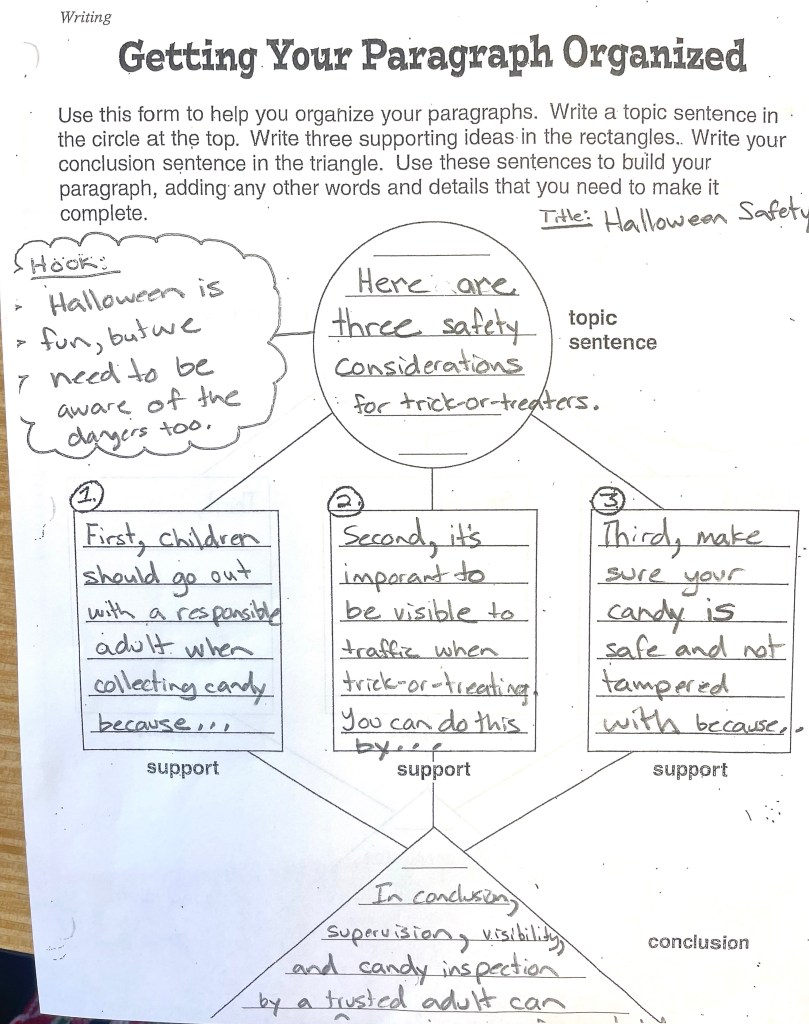 Writing
Getting Your Paragraph Organized
Use this form to help you organize your paragraphs. Write a topic sentence in
the circle at the top. Write three supporting ideas in the rectangles. Write your
conclusion sentence in the triangle. Use these sentences to build your
paragraph, adding any other words and details that you need to make it
complete.
Title: Halloween Safety
Hook:
Halloween is
fun, but we
need to be
aware of the
dangers too.
Here are
three safety
considerations
for trick-or-treaters.
topic
sentence
1.
First, children
should go out
with a responsible
adult when
collecting candy
because...
support
2.
Second, it's
imporant to
be visible to
traffic when
trick-or-treating.
You can do this
by...
support
3
Third, make
sure your
candy is
safe and not
tampered
with because...
support
In conclusion,
supervision, visibility,
and candy inspection
by a trusted adult can
conclusion